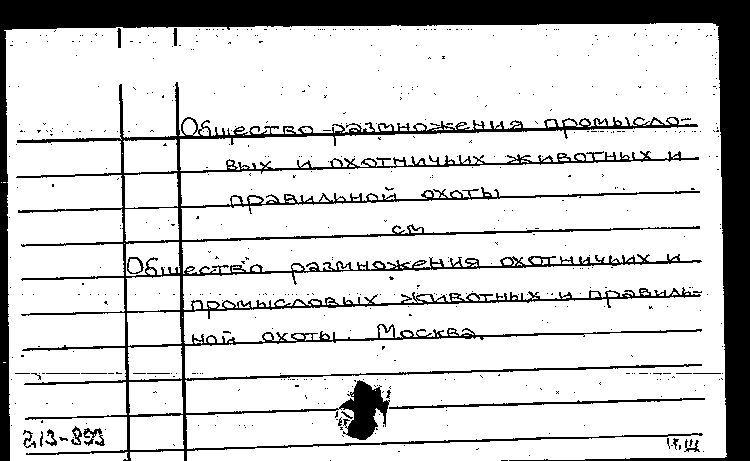 Общество размножения промысло-
вых и охотничьих животных и
правильной охоты
см
Общество размножения охотничьих и
промысловых животных и правиль-
ной охоты. Москва.